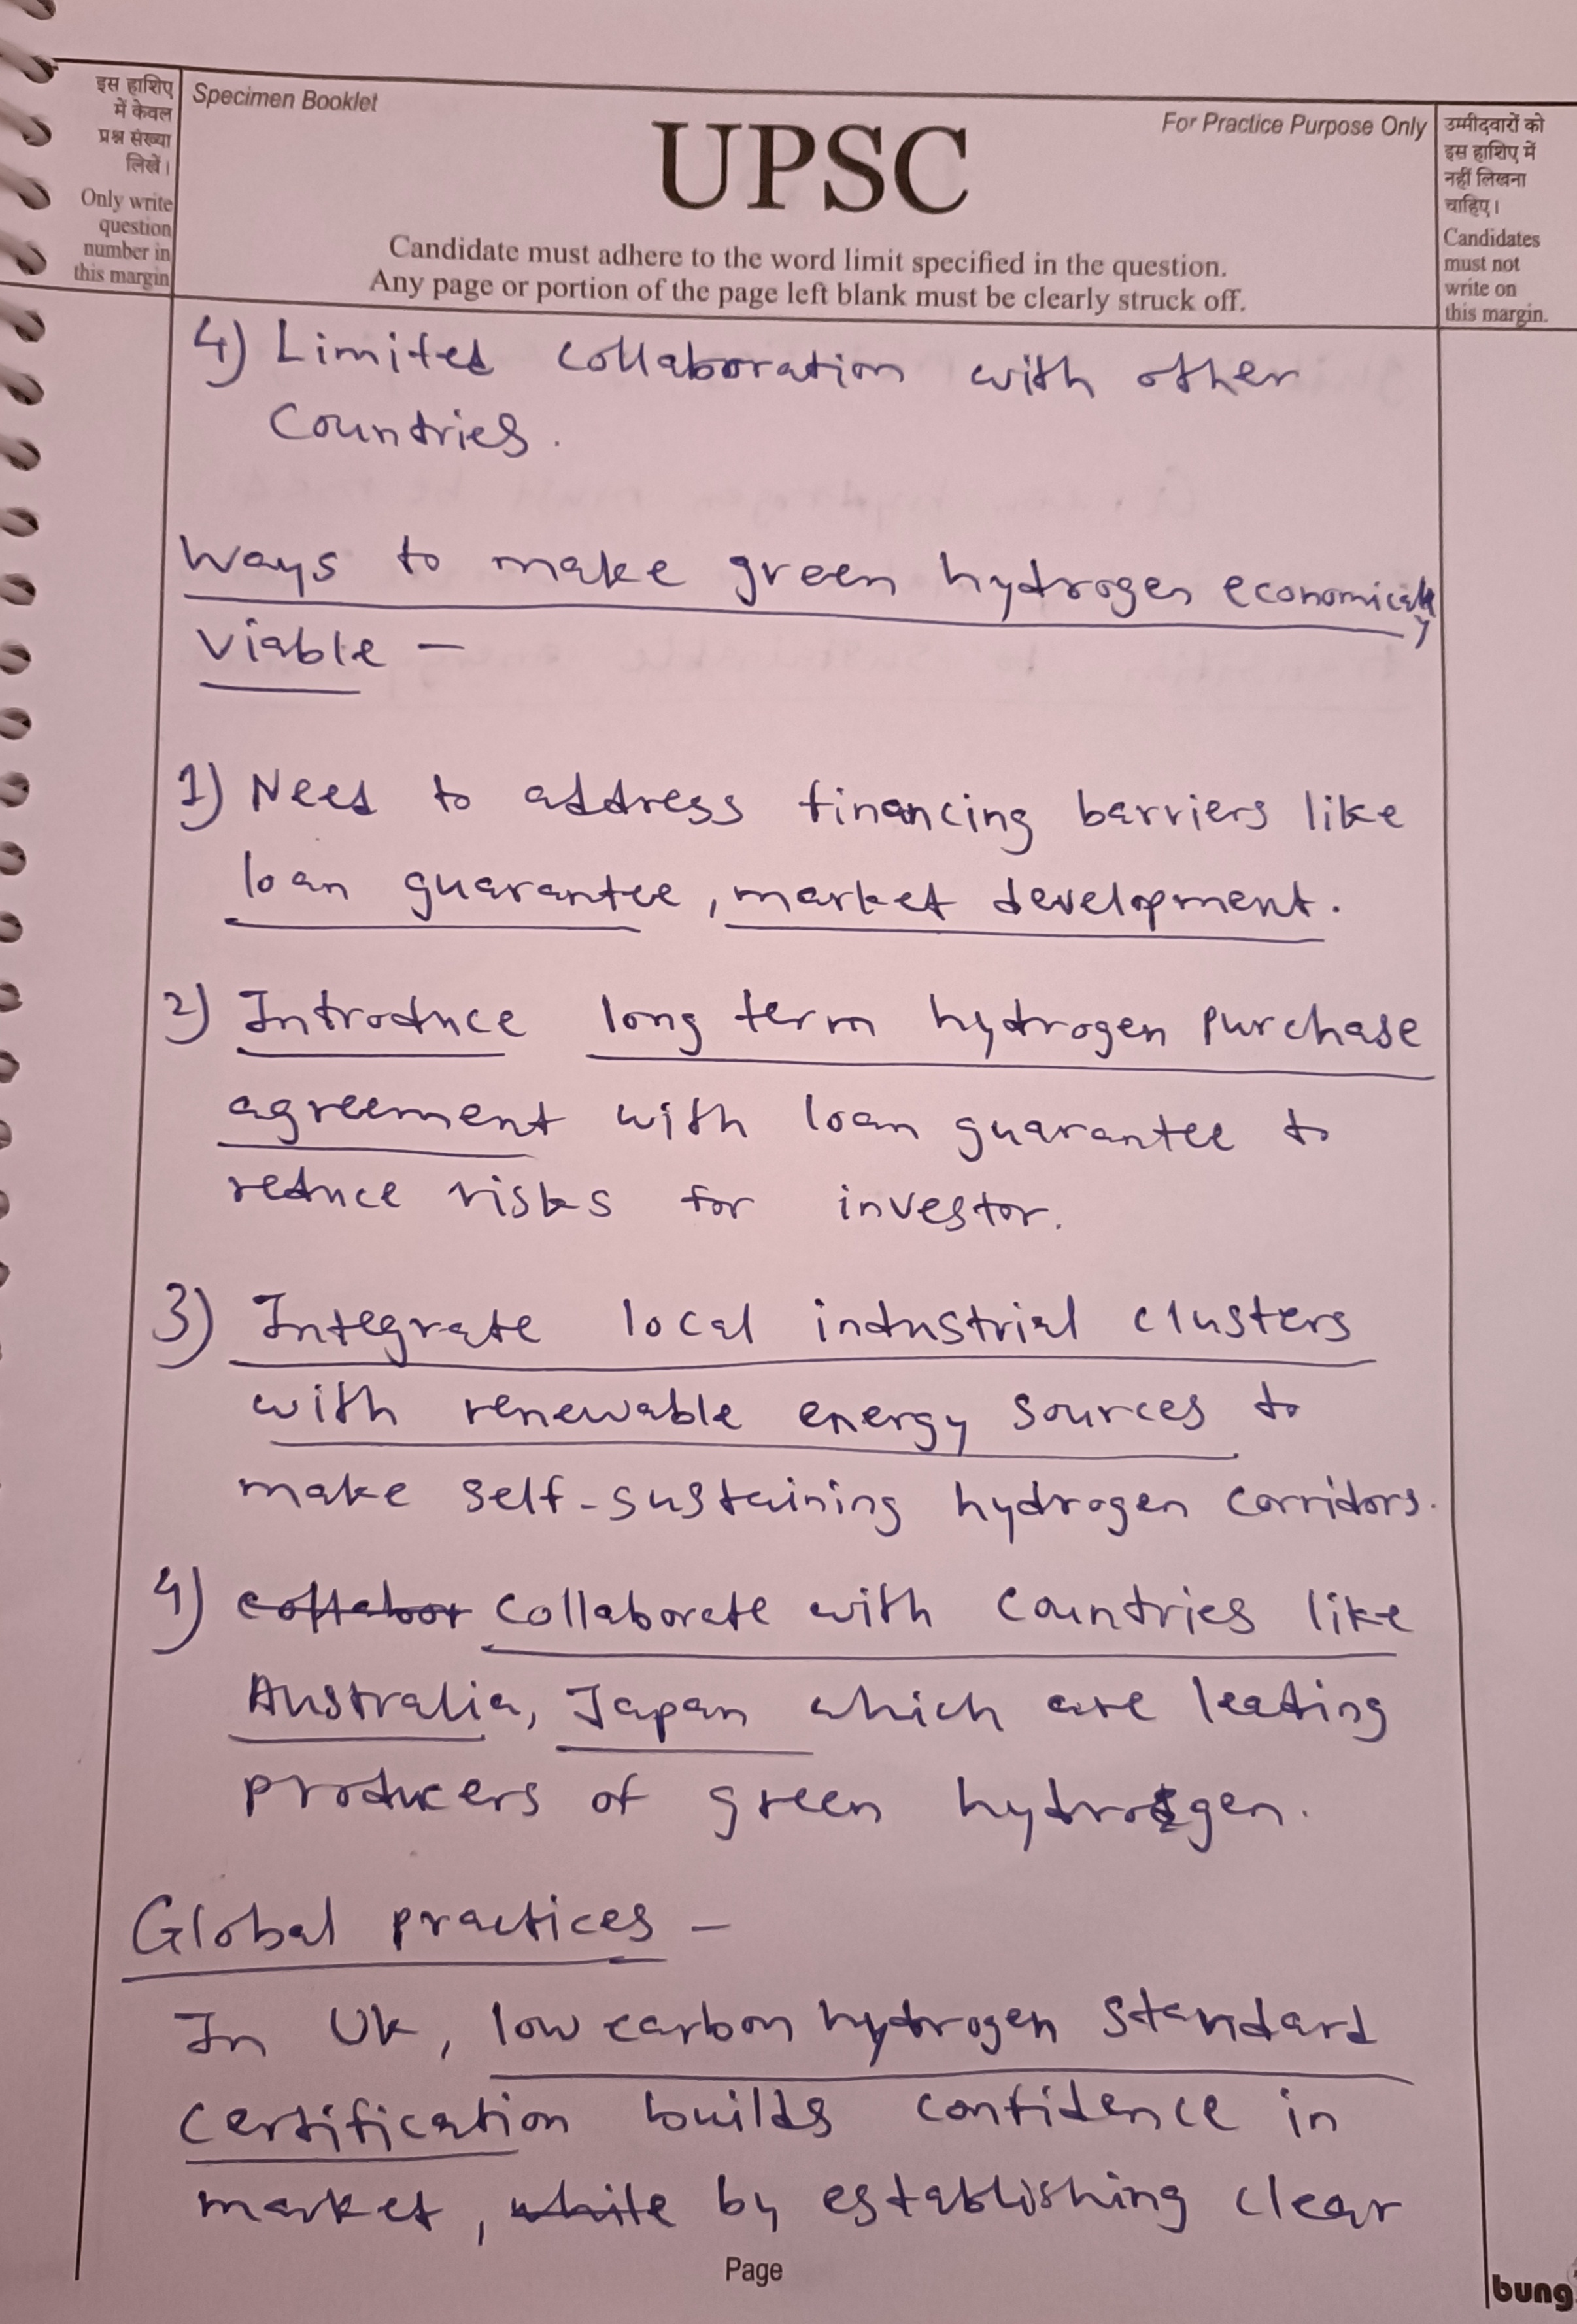 इस हाशिए
में केवल
प्रश्न संख्या
लिखें।
Only write
question
number in
this margin
Specimen Booklet
For Practice Purpose Only
UPSC
Candidate must adhere to the word limit specified in the question.
Any page or portion of the page left blank must be clearly struck off.
उम्मीदवारों को
इस हाशिए में
नहीं लिखना
चाहिए।
Candidates
must not
write on
this margin.
4) Limited collaboration with other
Countries.
Ways to make green hydrogen economically
viable –
1) Need to address financing barriers like
loan guarantee, market development.
2) Introduce long term hydrogen purchase
agreement with loan guarantee to
reduce risks for investor.
3) Integrate local industrial clusters
with renewable energy sources to
make self-sustaining hydrogen corridors.
4) collabor collaborate with countries like
Australia, Japan which are leading
producers of green hydrogen.
Global practices –
In UK, low carbon hydrogen standard
certification builds confidence in
market, while by establishing clear
Page
bung